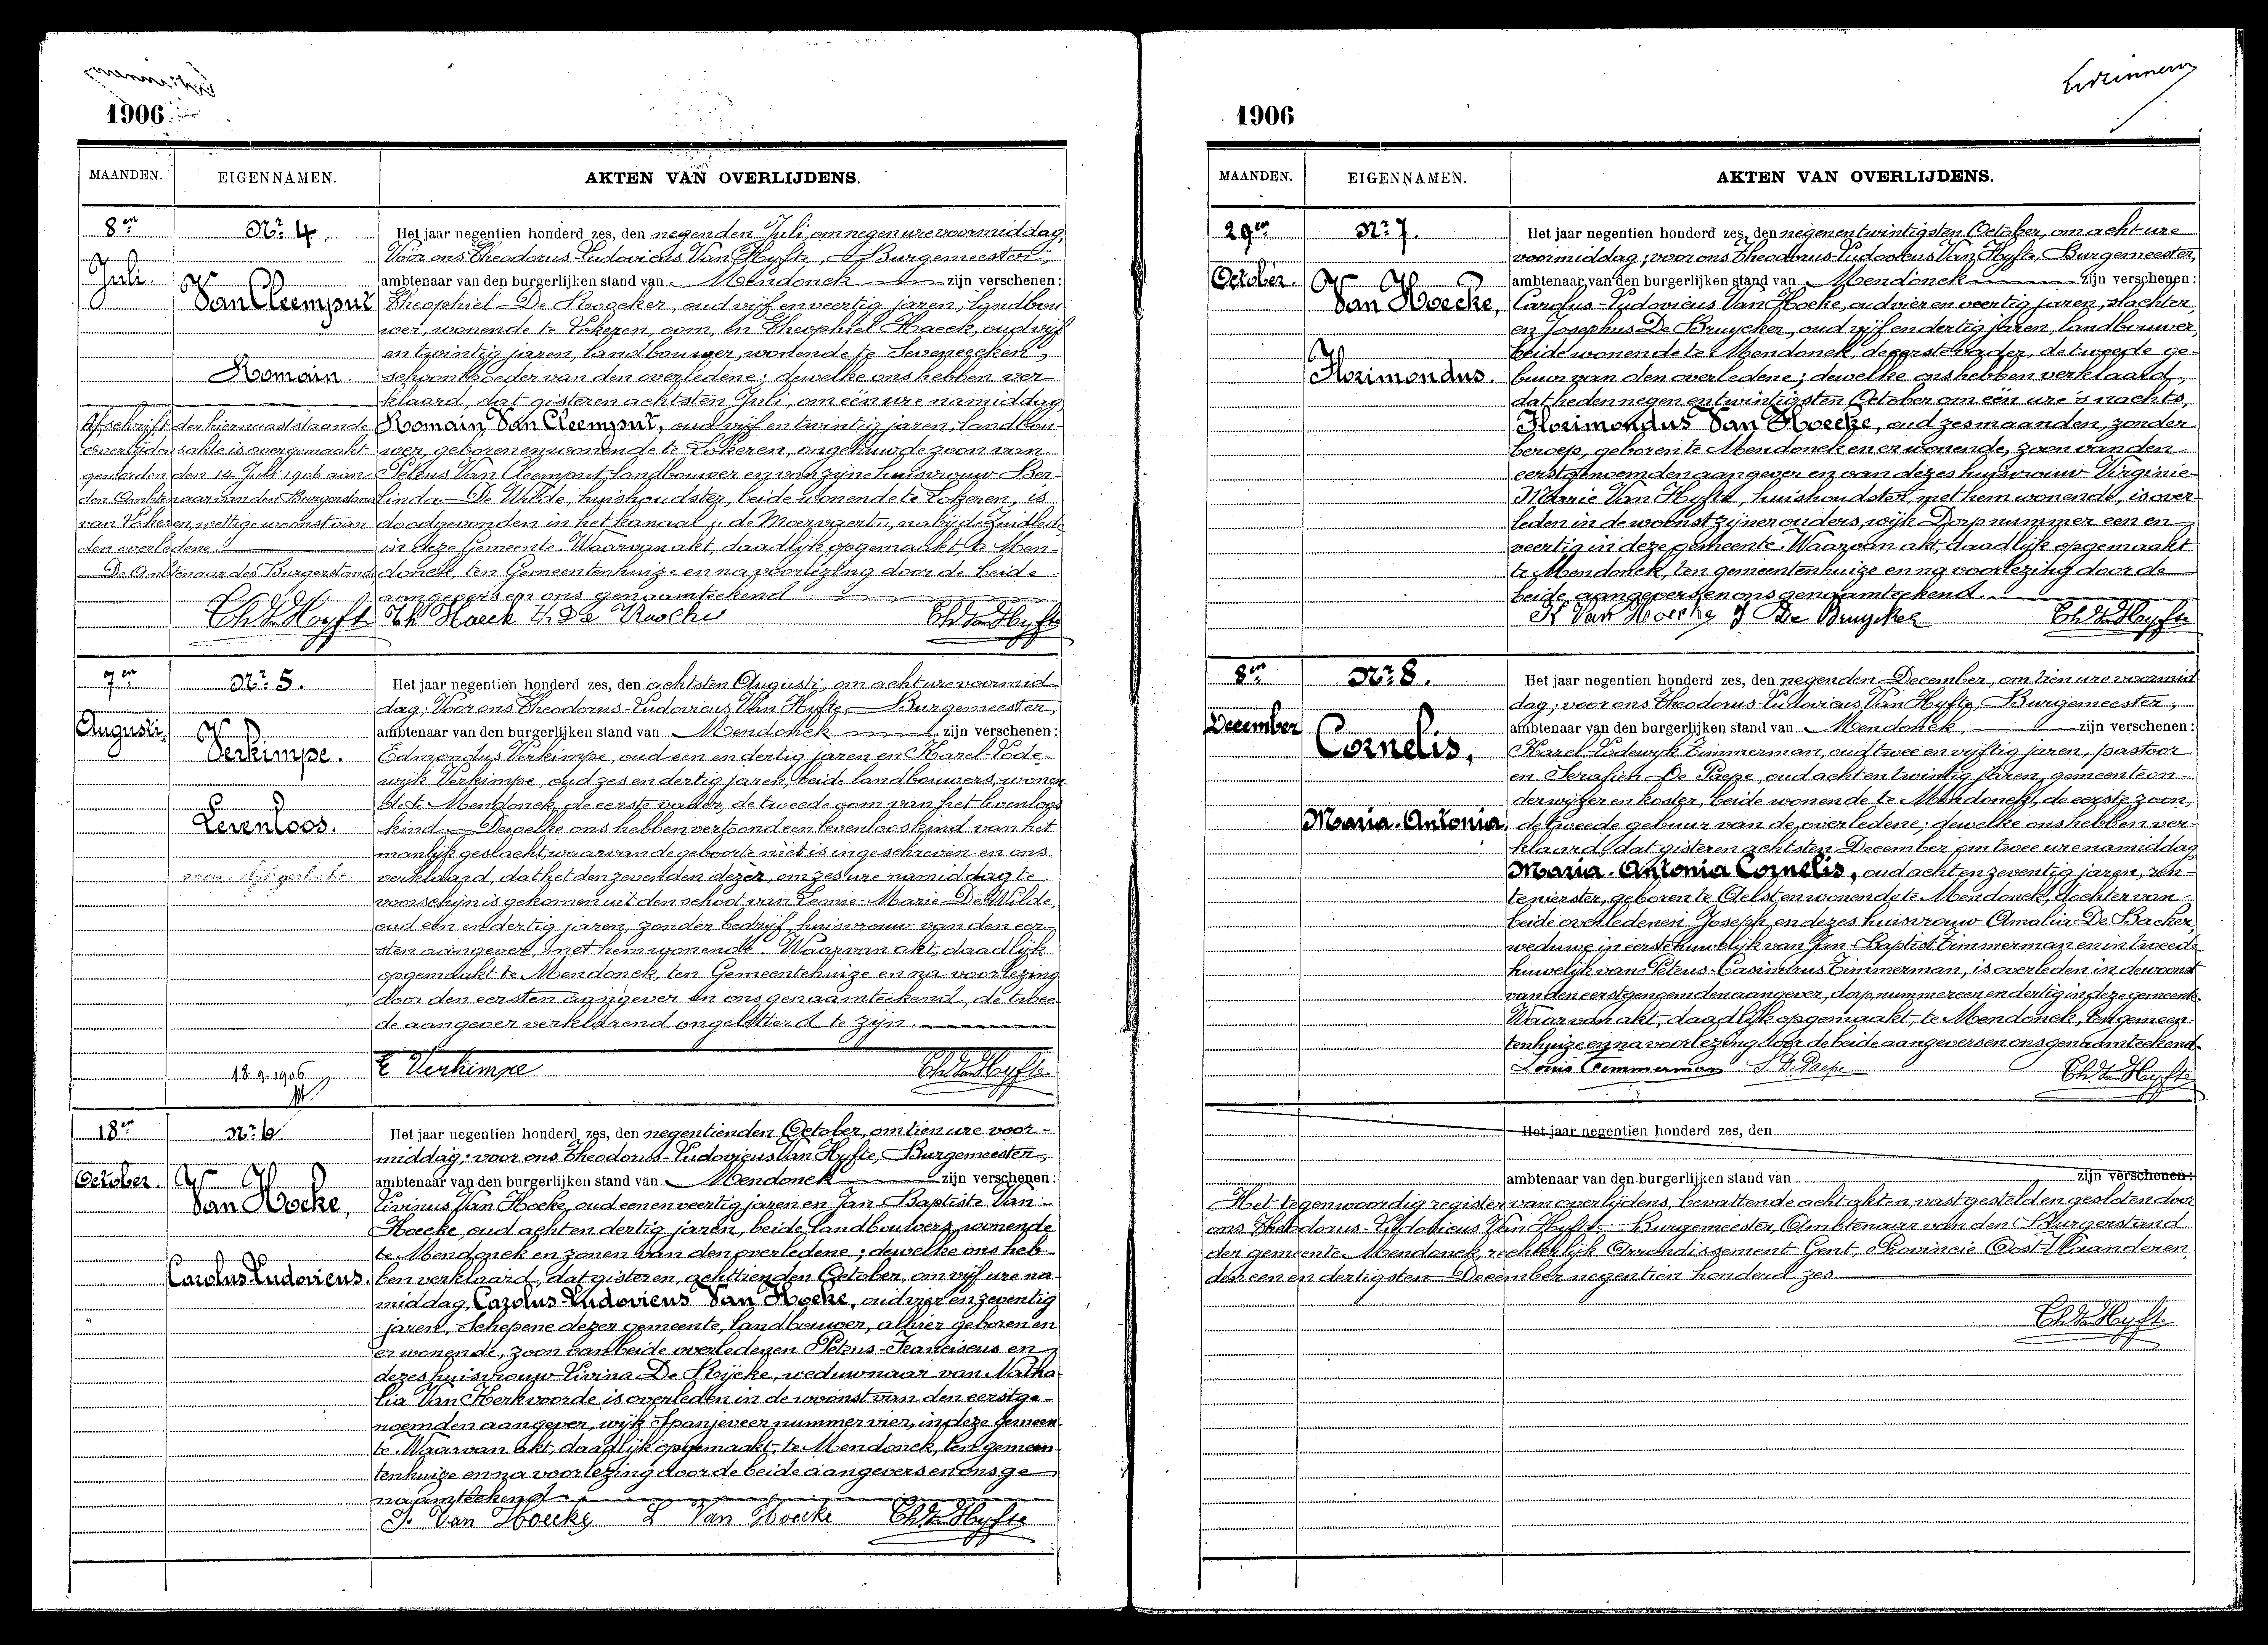 1906
MAANDEN. EIGENNAMEN. AKTEN VAN OVERLIJDENS.
8en
Juli.
No. 4.
Van Cleemput
Romain.
Afschrift der hiernaaststaande
overlijdensakte is overgemaakt
geworden den 14 Juli 1906 aan
den Ambtenaar van den Burgerstand
van Lokeren, wettige woonst van
den overledene.
De Ambtenaar des Burgerstands
Het jaar negentien honderd zes, den negenden Juli, om negen ure voormiddag,
Voor ons Theodorus-Ludovicus Van Hyfte, Burgemeester,
ambtenaar van den burgerlijken stand van Mendonck zijn verschenen:
Theophiel De, oud vijf en veertig jaren, landbou-
wer, wonende te Lokeren, oom, en Theophiel Haeck, oud vijf
en twintig jaren, landbouwer, wonende te Seveneecken,
schoonbroeder van den overledene; dewelke ons hebben ver-
klaard, dat gisteren achtsten Juli, om één ure namiddag,
Romain Van Cleemput, oud vijf en twintig jaren, landbou-
wer, geboren en wonende te Lokeren, ongehuwde zoon van
Petrus Van Cleemput landbouwer en van zijne huisvrouw Ber-
linda De Wilde, huishoudster, beide wonende te Lokeren, is
doodgevonden in het kanaal "de Moervaert", nabij de Zuidlede
in deze Gemeente. Waarvan akt, daadlijk opgemaakt te Men-
donck, ten Gemeentenhuize en na voorlezing door de beide
aangevers en ons genaamteekend
Th. Van Hyfte Th Haeck Th. De Th. Van Hyfte
7en
Augusti.
No. 5.
Verkimpe.
Levenloos.
18.9.1906
Het jaar negentien honderd zes, den achtsten Augusti, om acht ure voormid-
dag; Voor ons Theodorus-Ludovicus Van Hyfte, Burgemeester,
ambtenaar van den burgerlijken stand van Mendonck zijn verschenen:
Edmondus Verkimpe, oud een en dertig jaren en Karel-Lode-
wijk Verkimpe, oud zes en dertig jaren, beide landbouwers, wonen-
de te Mendonck, de eerste vader, de tweede oom van het levenloos
kind. Dewelke ons hebben vertoond een levenloos kind van het
manlijk geslacht, waarvan de geboorte niet is ingeschreven en ons
verklaard, dat het den zevenden dezer, om zes ure namiddag te
voorschijn is gekomen uit den schoot van Leonie-Marie De Wilde,
oud een en dertig jaren, zonder bedrijf, huisvrouw van den eer-
sten aangever, met hem wonende. Waarvan akt, daadlijk
opgemaakt te Mendonck, ten Gemeentehuize en na voorlezing
door den eersten aangever en ons genaamteekend, de twee-
de aangever verklarend ongeletterd te zijn.
E Verkimpe Th. Van Hyfte
18en
October.
No. 6.
Van Hoeke,
Carolus-Ludovicus.
Het jaar negentien honderd zes, den negentienden October, om tien ure voor-
middag; voor ons Theodorus-Ludovicus Van Hyfte, Burgemeester,
ambtenaar van den burgerlijken stand van Mendonck zijn verschenen:
Livinus Van Hoeke, oud een en veertig jaren en Jan-Baptiste Van
Hoecke, oud acht en dertig jaren, beide landbouwers, wonende
te Mendonck en zonen van den overledene; dewelke ons heb-
ben verklaard, dat gisteren, achttienden October, om vijf ure na-
middag, Carolus-Ludovicus Van Hoeke, oud vier en zeventig
jaren, Schepene dezer gemeente, landbouwer, alhier geboren en
er wonende, zoon van beide overledenen Petrus-Franciscus en
dezes huisvrouw Livina De Rijcke, weduwnaar van Natha-
lia Van Kerkvoorde is overleden in de woonst van den eerstge-
noemden aangever, wijk Spanjeveer nummer vier, in deze Gemeen-
te. Waarvan akt, daadlijk opgemaakt, te Mendonck, ten gemeen-
tenhuize en na voorlezing door de beide aangevers en ons ge-
naamteekend.
J. Van Hoecke L Van Hoecke Th. Van Hyfte
1906
MAANDEN. EIGENNAMEN. AKTEN VAN OVERLIJDENS.
29en
October.
No. 7.
Van Hoecke,
Florimondus.
Het jaar negentien honderd zes, den negen en twintigsten October, om acht ure
voormiddag; voor ons Theodorus-Ludovicus Van Hyfte, Burgemeester,
ambtenaar van den burgerlijken stand van Mendonck zijn verschenen:
Carolus-Ludovicus Van Hoeke, oud vier en veertig jaren, slachter,
en Josephus De Bruycker, oud vijf en dertig jaren, landbouwer,
beide wonende te Mendonck, de eerste vader, de tweede ge-
buur van den overledene; dewelke ons hebben verklaard,
dat heden negen en twintigsten October om één ure 's nachts,
Florimondus Van Hoecke, oud zes maanden, zonder
beroep, geboren te Mendonck en er wonende, zoon van den
eerstgenoemden aangever en van dezes huisvrouw Virginie-
Marie Van Hyfte, huishoudster, met hem wonende, is over-
leden in de woonst zijner ouders, wijk Dorp nummer een en
veertig in deze gemeente. Waarvan akt, daadlijk opgemaakt
te Mendonck, ten gemeentenhuize en na voorlezing door de
beide aangevers en ons genaamteekend.
K Van Hoecke J De Bruycker Th. Van Hyfte
8en
December
No. 8.
Cornelis,
Maria-Antonia,
Het jaar negentien honderd zes, den negenden December, om tien ure voormid-
dag; voor ons Theodorus-Ludovicus Van Hyfte, Burgemeester,
ambtenaar van den burgerlijken stand van Mendonck, zijn verschenen:
Karel-Lodewyk Timmerman, oud twee en vijftig jaren, pastoor
en Serafien De Paepe, oud acht en twintig jaren, gemeenteon-
derwijzer en koster, beide wonende te Mendonck, de eerste zoon,
de tweede gebuur van de overledene; dewelke ons hebben ver-
klaard, dat gisteren achtsten December om twee ure namiddag
Maria-Antonia Cornelis, oud acht en zeventig jaren, ren-
tenierster, geboren te Aelst en wonende te Mendonck, dochter van
beide overledenen Joseph en dezes huisvrouw Amalia De Backer,
weduwe in eerste huwelijk van Jan-Baptist Timmerman en in tweede
huwelijk van Petrus-Casimirus Timmerman, is overleden in de woonst
van den eerstgenoemden aangever, dorp, nummer een en dertig in deze gemeente.
Waarvan akt, daadlijk opgemaakt, te Mendonck, ten gemeen-
tenhuize en na voorlezing door de beide aangevers en ons genaamteekend.
Louis Timmerman S. De Paepe Th. Van Hyfte
Het jaar negentien honderd zes, den
ambtenaar van den burgerlijken stand van zijn verschenen:
Het tegenwoordig register van overlijdens, bevattende acht akten, vastgesteld en gesloten door
ons Theodorus-Ludovicus Van Hyfte Burgemeester, Ambtenaar van den Burgerstand
der gemeente Mendonck, rechterlijk Arrondissement Gent, Provincie Oost-Vlaanderen,
den een en dertigsten December negentien honderd zes.
Th. Van Hyfte